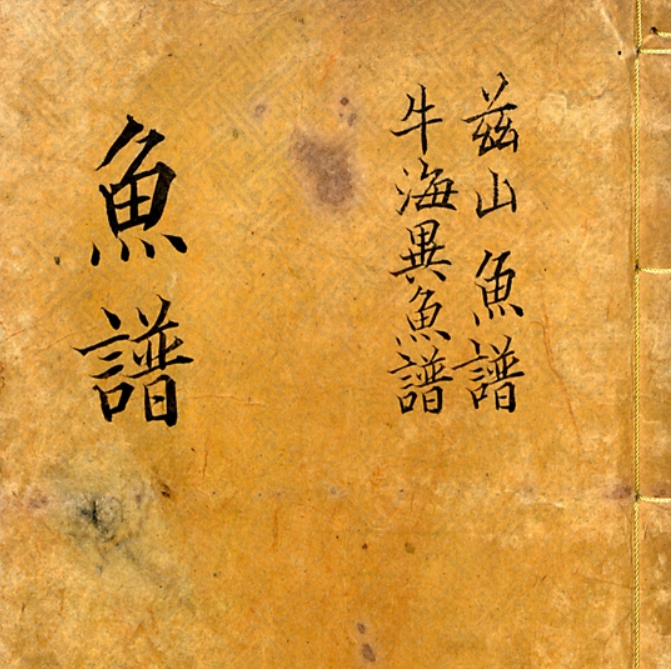 茲山魚譜
牛海異魚譜
魚譜